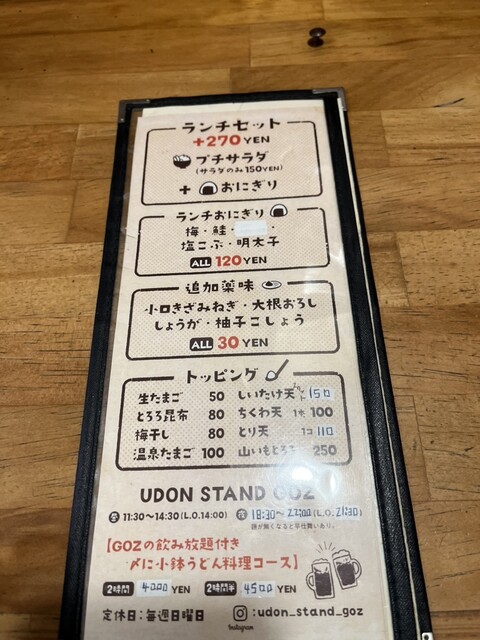 ランチセット
+270YEN
プチサラダ
(サラダのみ150YEN)
+ おにぎり
ランチおにぎり
梅・鮭・
塩こぶ・明太子
ALL 120YEN
追加薬味
小口きざみねぎ・大根おろし
しょうが・柚子こしょう
ALL 30 YEN
トッピング
生たまご 50 しいたけ天 150
とろろ昆布 80 ちくわ天 1本 100
梅干し 80 とり天 1コ 110
温泉たまご 100 山いもとろろ 250
UDON STAND GOZ
11:30〜14:30(L.O.14:00) 18:30〜22:00(L.O.21:30)
麺が無くなると早仕舞いあり。
【GOZの飲み放題付き
〆に小鉢うどん料理コース】
2時間 4000 YEN 2時間半 4500 YEN
定休日:毎週日曜日 :udon_stand_goz
Instagram